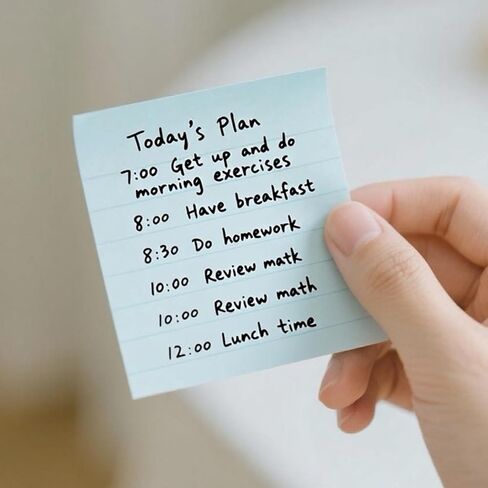 Today's Plan
7:00 Get up and do
morning exercises
8:00 Have breakfast
8:30 Do homework
10:00 Review matk
10:00 Review math
12:00 Lunch time